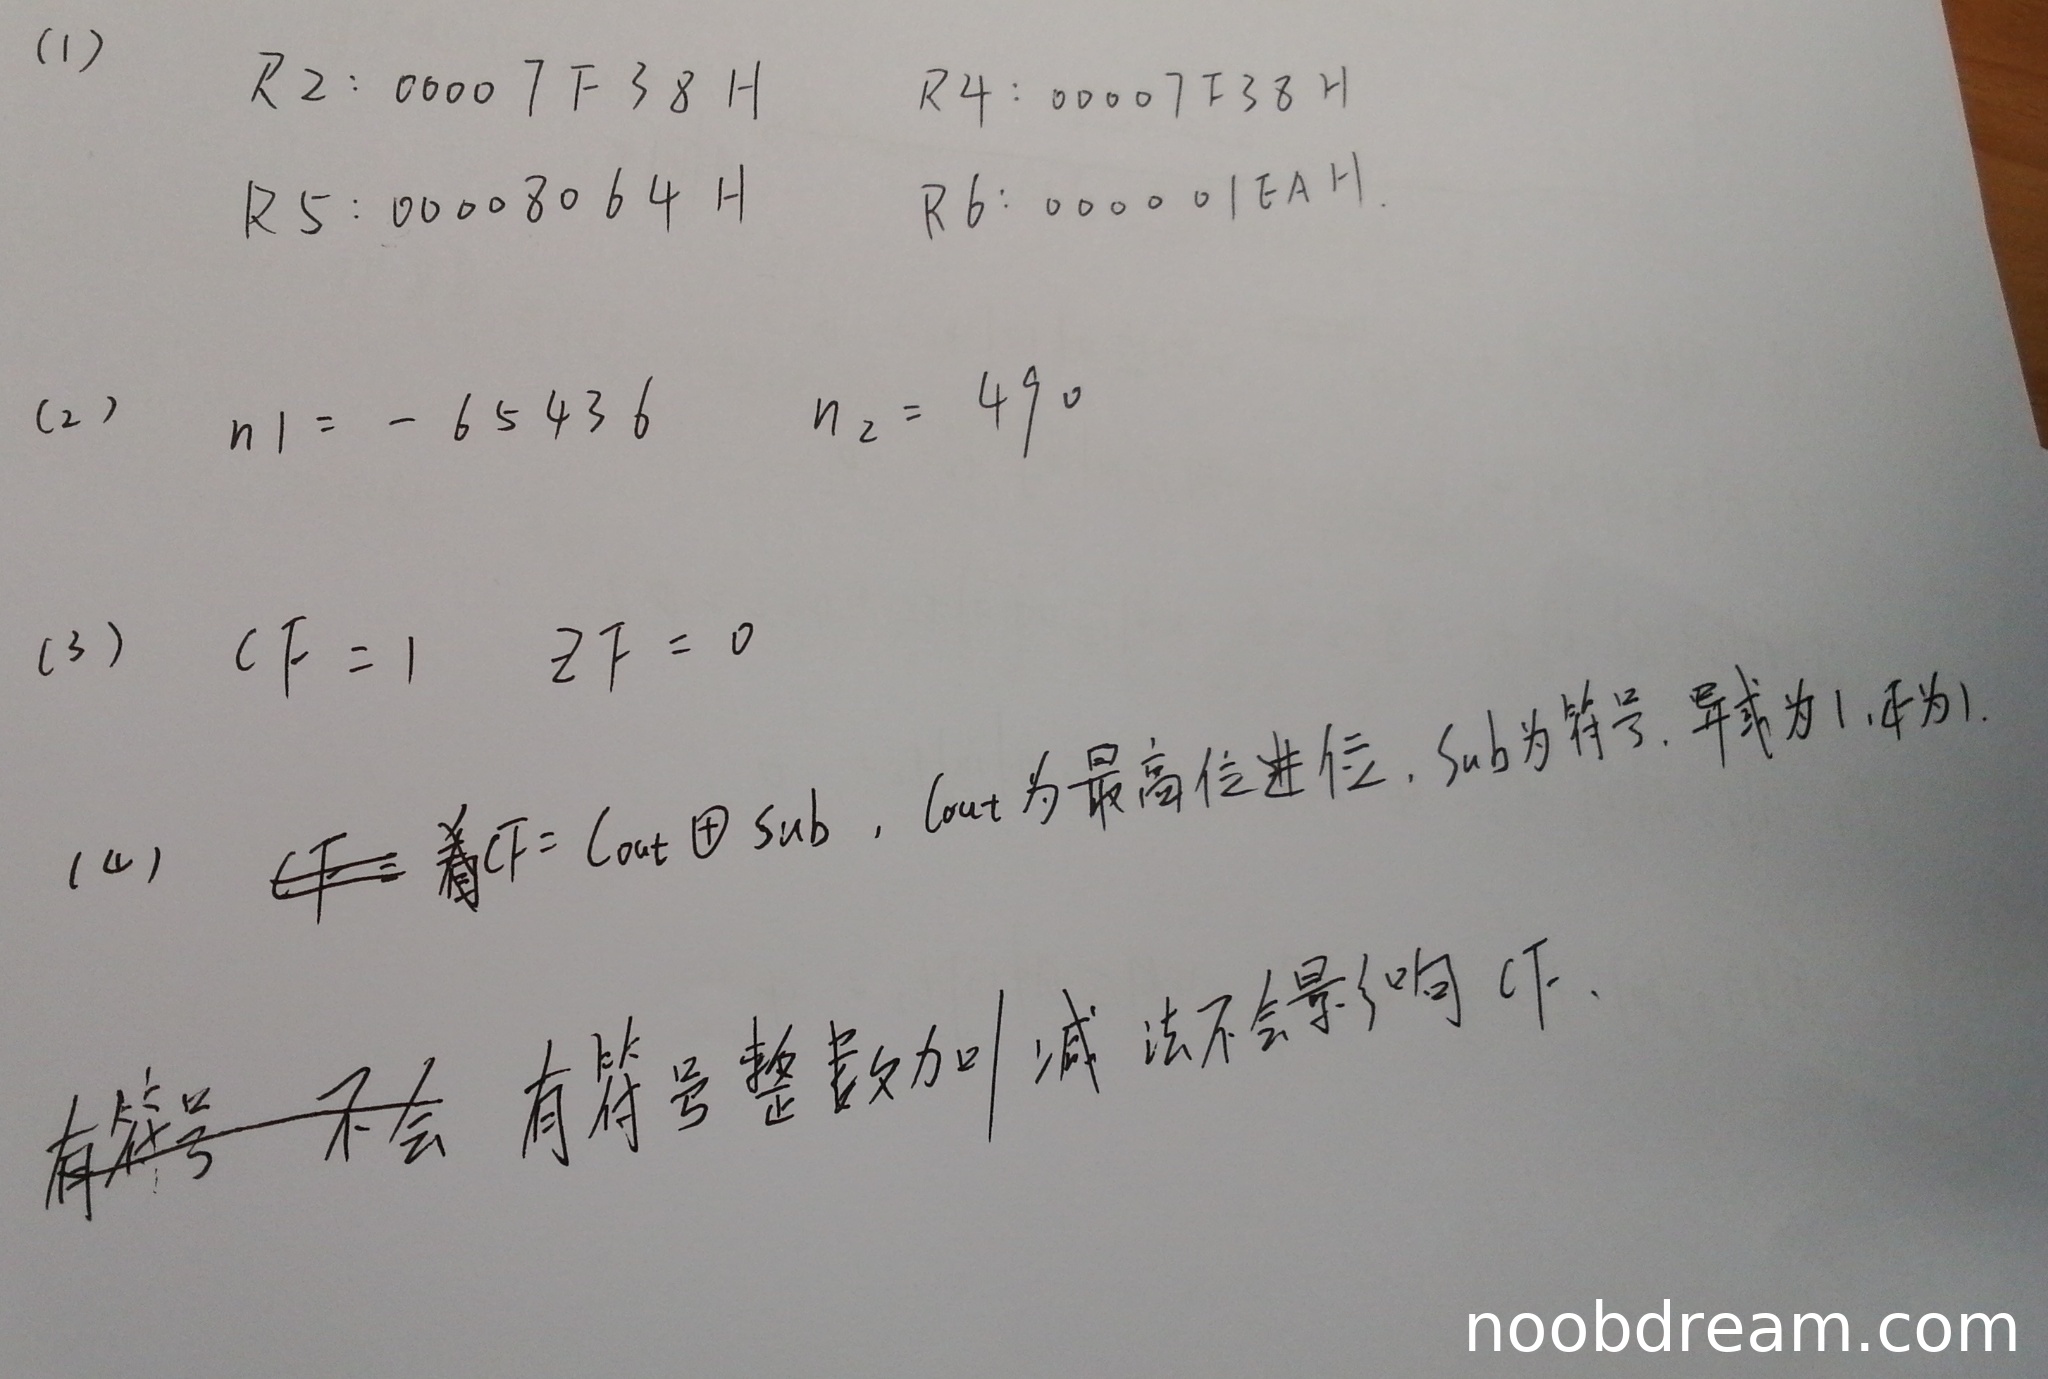 (1)
R2: 00007F38H R4: 00007F38H
R5: 00008064H R6: 000001EAH.
(2) n1 = -65436 n2 = 490
(3) CF = 1 ZF = 0
(4) CF = CF = Cout ⊕ Sub, Cout为最高位进位, Sub为符号. 异或为1, CF为1.
有符号 不会 有符号整数加/减法不会影响CF.
noobdream.com